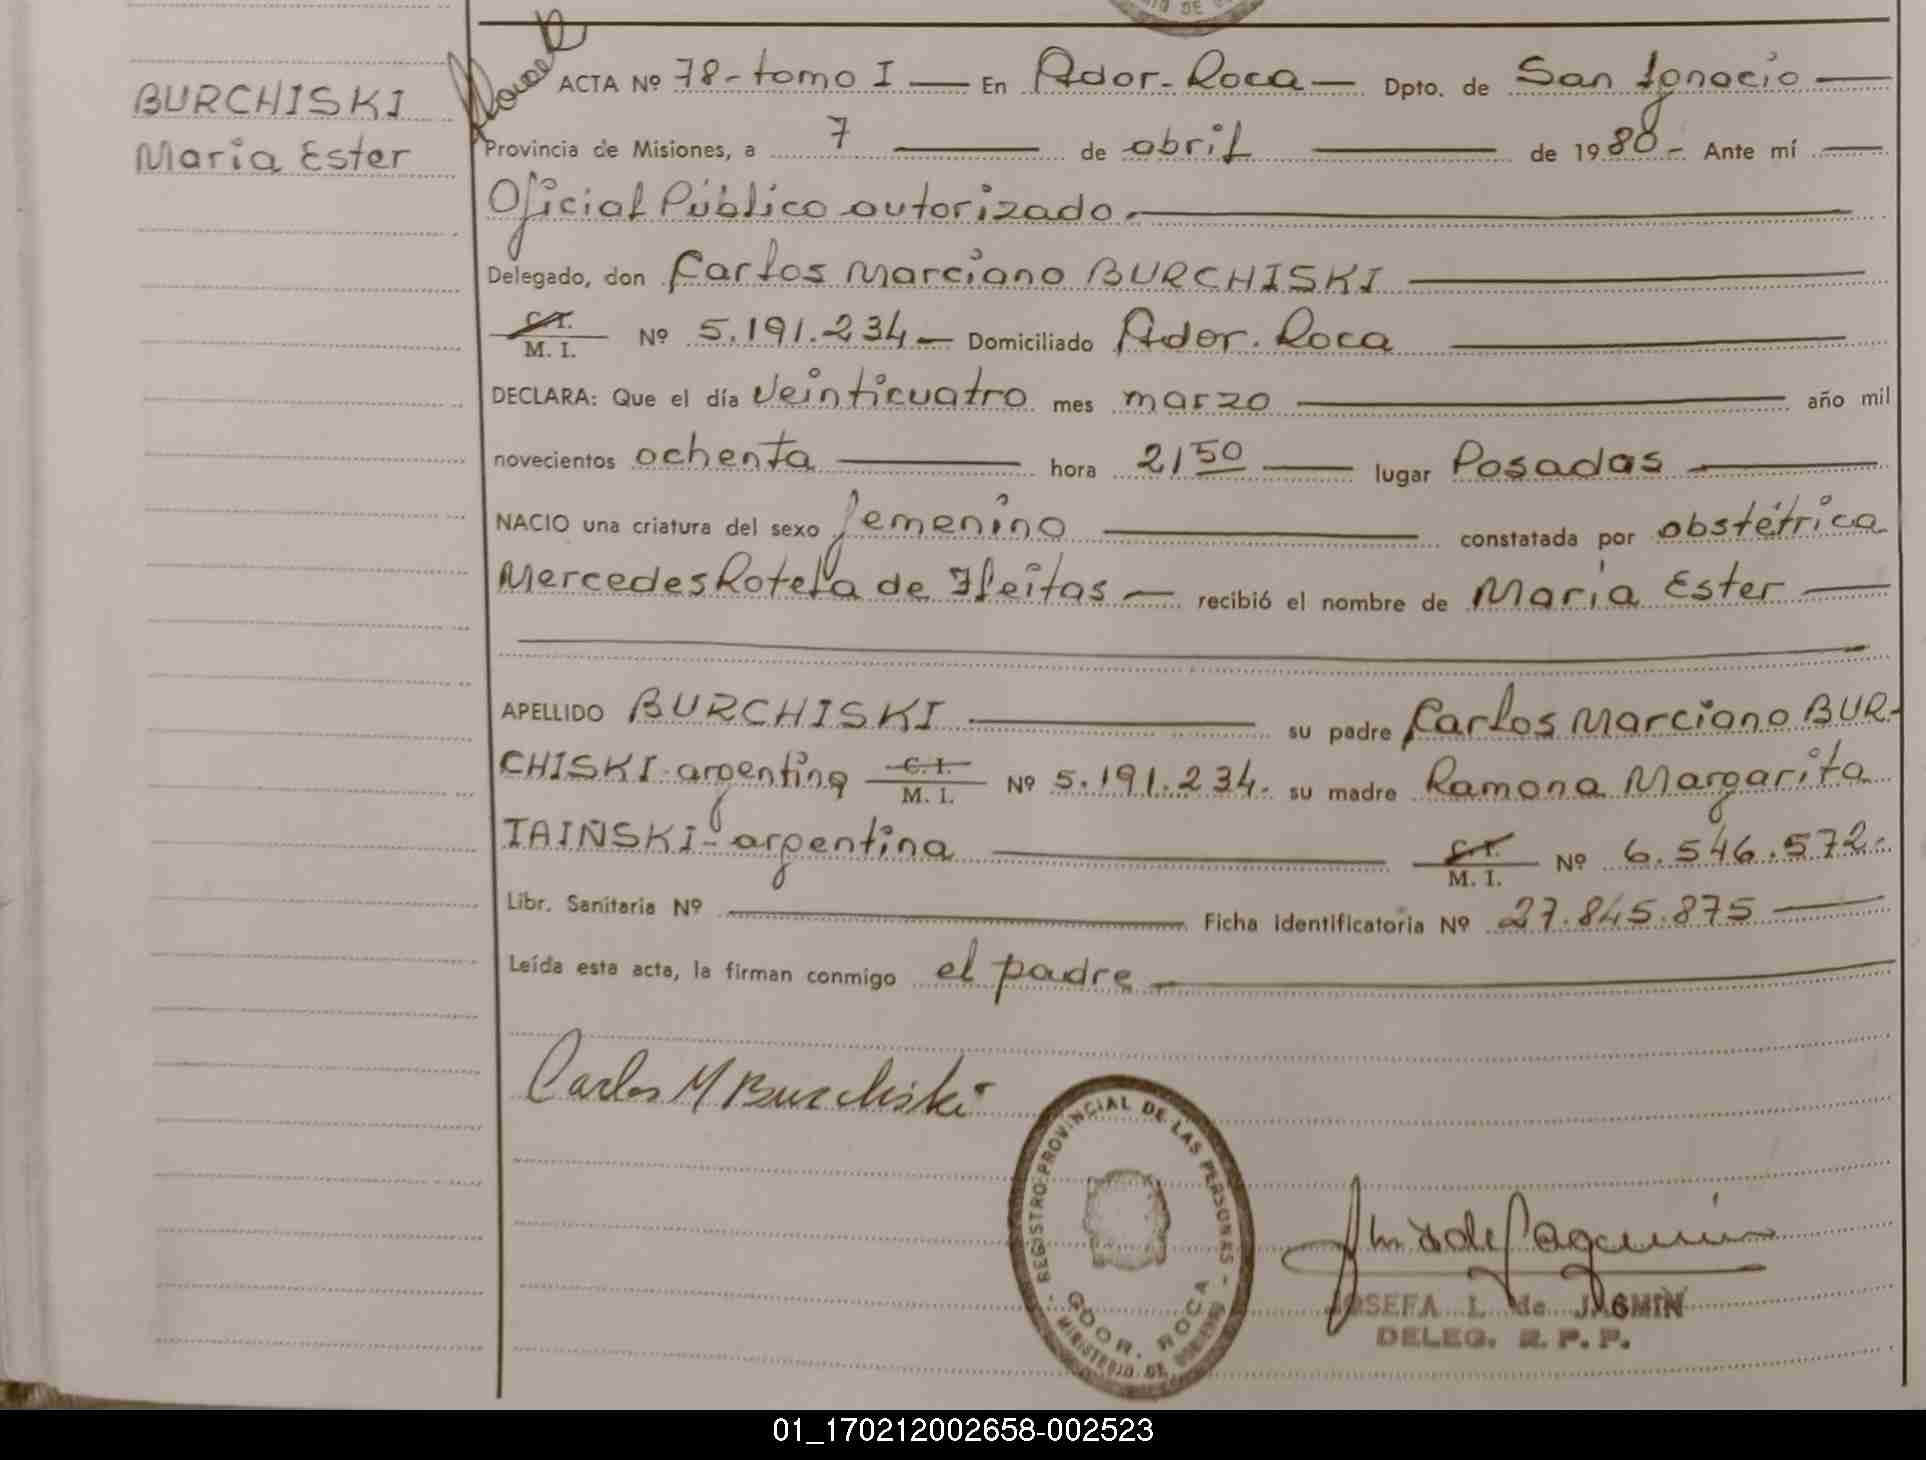 BURCHISKI
Maria Ester
ACTA Nº 78-tomo I — En Gdor. Roca — Dpto. de San Ignacio —
Provincia de Misiones, a 7 — de abril — de 1980.- Ante mí —
Oficial Público autorizado.
Delegado, don Carlos Marciano BURCHISKI
C.I.
M. I. Nº 5.191.234 — Domiciliado Gdor. Roca
DECLARA: Que el día veinticuatro mes marzo — año mil
novecientos ochenta — hora 2150 — lugar Posadas —
NACIO una criatura del sexo femenino — constatada por obstétrica
Mercedes Rotela de Fleitas — recibió el nombre de María Ester —
APELLIDO BURCHISKI — su padre Carlos Marciano BUR-
CHISKI-argentino C.I. M. I. Nº 5.191.234. su madre Ramona Margarita
TAIÑSKI-argentina — C.I. M. I. Nº 6.546.572.-
Libr. Sanitaria Nº — Ficha identificatoria Nº 27.845.875 —
Leída esta acta, la firman conmigo el padre —
Carlos M Burchiski
REGISTRO PROVINCIAL DE LAS PERSONAS
GDOR. ROCA
MINISTERIO DE GOBIERNO
JOSEFA I. de JASMIN
DELEG. R. P. P.
01_170212002658-002523